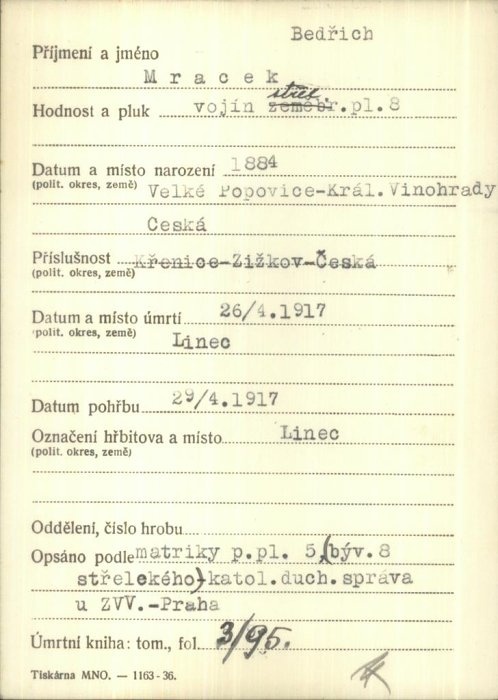 Bedřich
Příjmení a jméno
Mracek
Hodnost a pluk vojín zeměbr. střel. pl. 8
Datum a místo narození 1884
(polit. okres, země) Velké Popovice-Král. Vinohrady
Česká
Příslušnost Křenice-Zižkov-Česká
(polit. okres, země)
Datum a místo úmrtí 26/4.1917
(polit. okres, země) Linec
Datum pohřbu 29/4.1917
Označení hřbitova a místo Linec
(polit. okres, země)
Oddělení, číslo hrobu
Opsáno podle matriky p.pl. 5 (býv. 8
střelekého) katol. duch. správa
u ZVV.-Praha
Úmrtní kniha: tom., fol. 3/95.
Tiskárna MNO. — 1163-36.